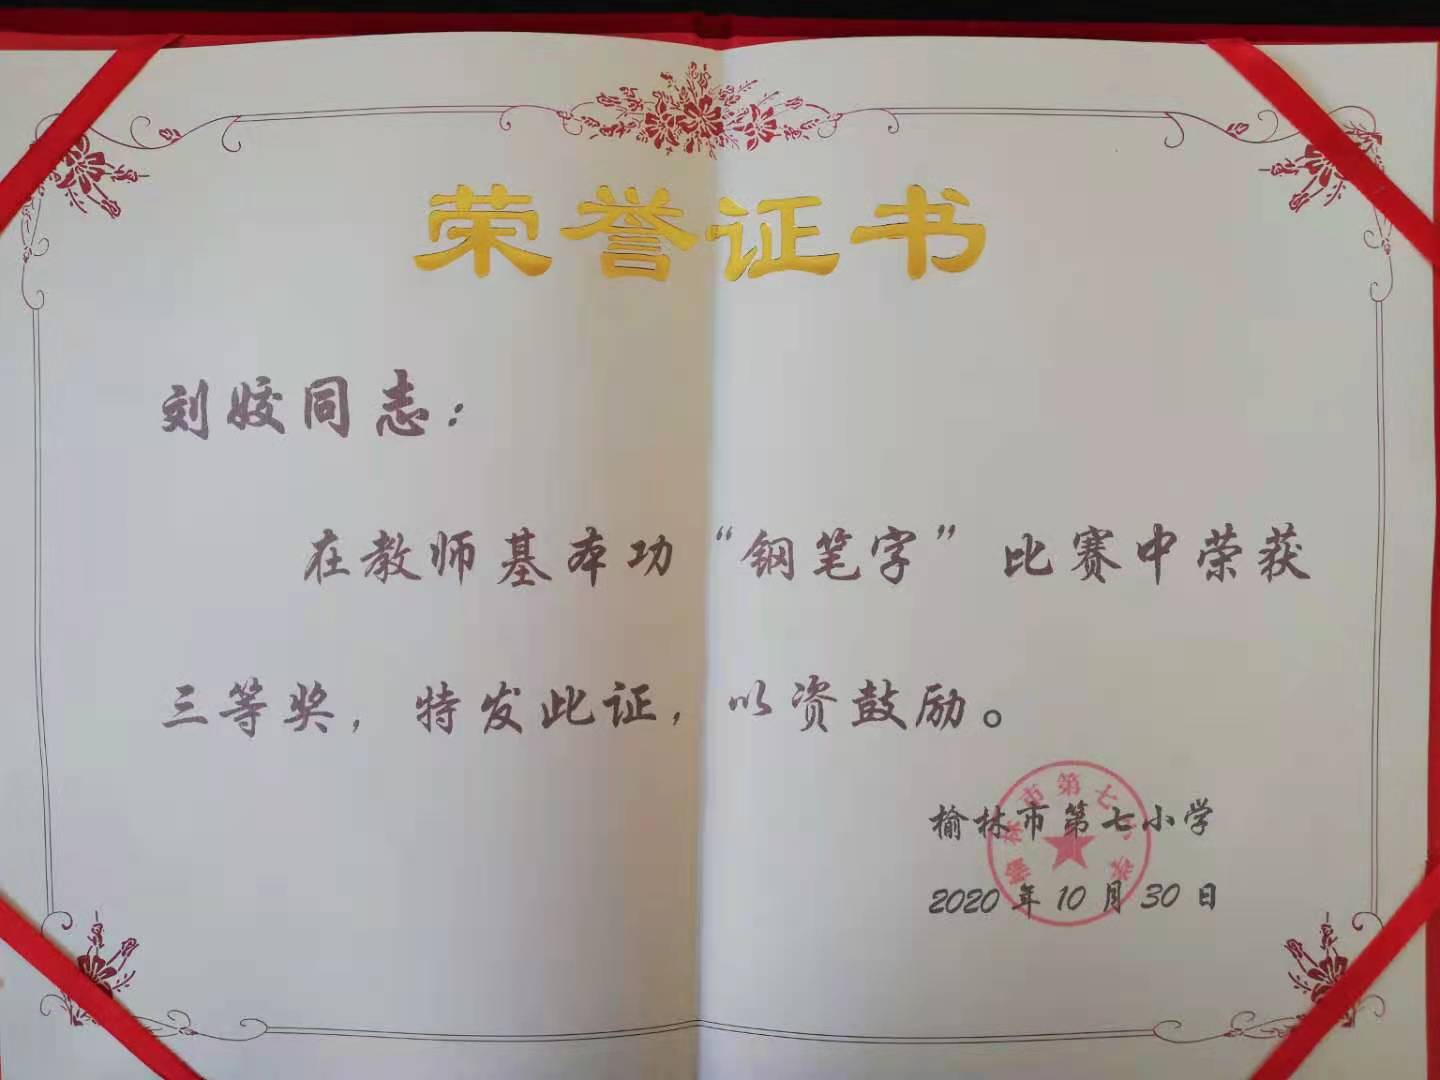 荣誉证书
刘姣同志：
在教师基本功“钢笔字”比赛中荣获
三等奖，特发此证，以资鼓励。
榆林市第七小学
2020年10月30日
榆林市第七小学